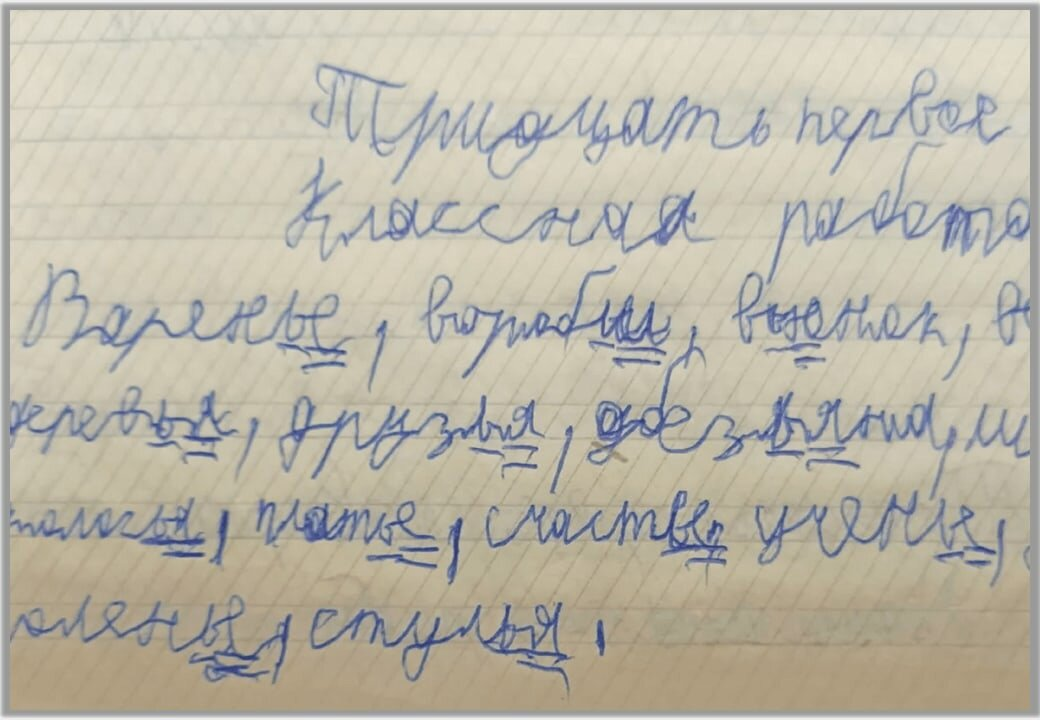 Тридцать первое
Классная работа
Варенье, воробьи, вьюнок,
деревья, друзья, обезьяна,
платье, счастье, ученье,
оленье, стулья,